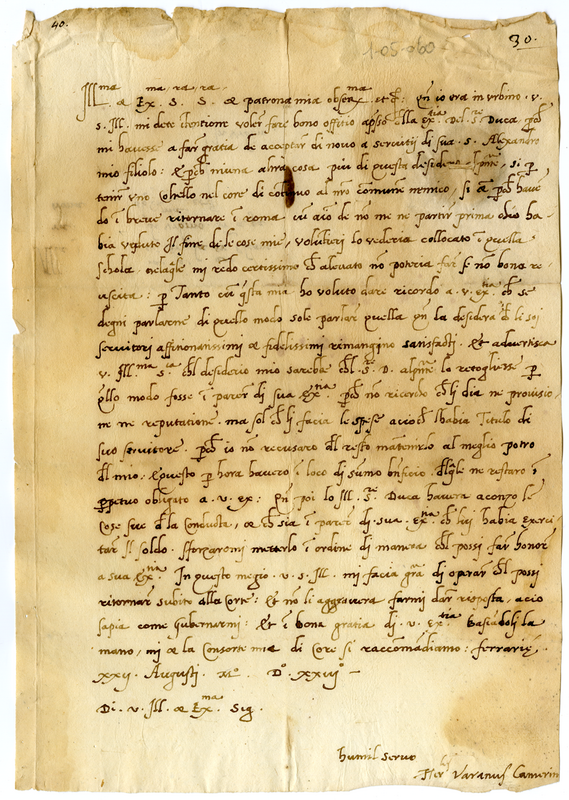 40.
30.
Ill.ma & Ex.ma S.ra S.ra & patrona mia obser.ma etc: Qn io era in Urbino . v.
s. Ill. mi dete Intentione voler fare bono officio apsso alla Ex.tia del S.r Duca
mi havesse a far gratia de acceptar di novo a servitii di sua . s. Alexandro
mio filiolo: & niuna altra cosa piu di questa desidera , si p
tenir uno Obello nel core di al nro comune nemico, si a have
do i breve ritornare i roma cu aio de no me ne partir prima ch io ha
bia veduto Il fine de le cose mie, volutieri lo vederia collocato i quella
schola. mi redo certissimo ch alevato no poteria far se no bona re
uscita: p Tanto cu qsta mia ho voluto dare ricordo a . v. ex.tia ch se
degni parlarne di quello modo sole parlar quella qn la desidera ch li soi
servitori affitionatissimi & fidelissimi rimangino satisfacti. Et advertisca
v. Ill.ma s.ria chl desiderio mio sareba chl S. D. lo retogliesse p
qllo modo fosse i parer di sua Ex.tia no ricerdo chli dia ne provisio
ne ne reputatione. ma sol ch li facia le spese acioch lhabia Titulo di
suo servitore. io no recusaro dl resto matenirlo al meglio potro
dl mio. & questo p hora havero i loco di sumo bnficio. dlqle ne restaro i
ppetuo obligato a . v. ex: Qn poi lo Ill. S.r Duca havera aconzo le
cose sue dla Conducta, & ch sia i parer di sua . Ex.tia ch lui habia exerci
tar Il soldo. sforzaromi metterlo i ordine di manera chl possi far honor
a sua Ex.tia In questo mezio . v. s. Ill. mi facia gra di operar chl possi
ritornar subito alla Corte: Et no li aggravera farmi dar risposta, acio
sapia come Gubernarmi: Et i bona gratia di . v. Ex.tia basiadoli la
mano, mi & la Consorte mia di Core si raccomādiamo: ferrarie
xxii Augusti. M.o D.o xxiii.o
Di . v. Ill. & Ex.ma Sig.
humil servo
Her. Varanus Camerin